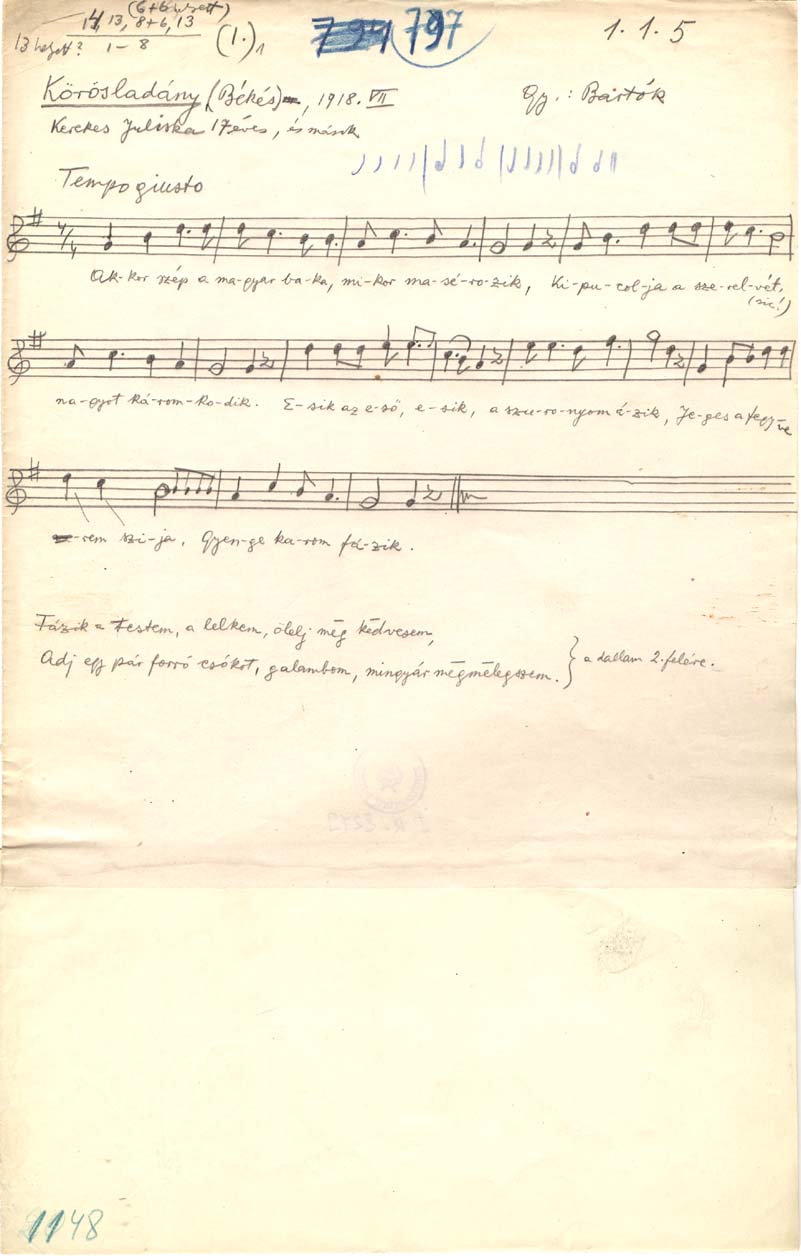 (6+6 helyett)
14, 13, 8+6, 13
13 helyett?
1–8
(1.)1
797
1. 1. 5
Körösladány (Békés), 1918. VII
Gy.: Bartók
Kerekes Juliska 17 éves, és mások
Tempo giusto
Ak-kor szép a ma-gyar ba-ka, mi-kor ma-sé-ro-zik, Ki-pu-col-ja a sze-rel-vét,
(sic!)
na-gyot ká-rom-ko-dik. E-sik az e-ső, e-sik, a szu-ro-nyom á-zik, Je-ges a fegy-ve
-rem szi-ja, Gyen-ge ka-rom fá-zik.
Fázik a testem, a lelkem, ölelj még kedvesem,
Adj egy pár forró csókot, galambom, mingyár mëgmelegszem. } a dallam 2. felére.
1148